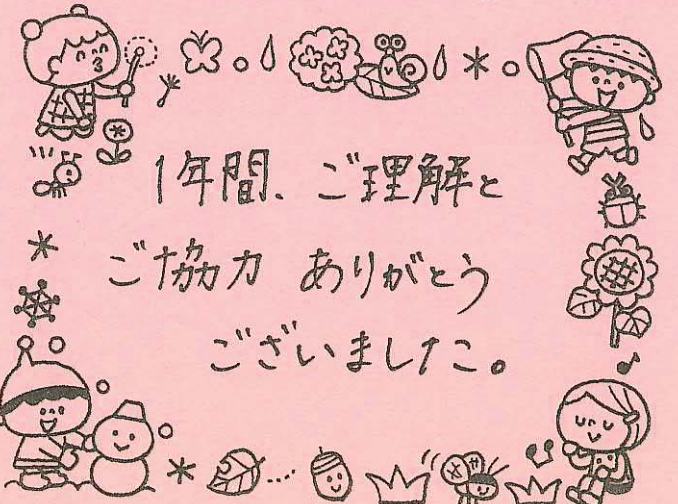 1年間、ご理解と
ご協力 ありがとう
ございました。